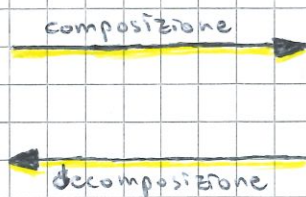 composizione
decomposizione